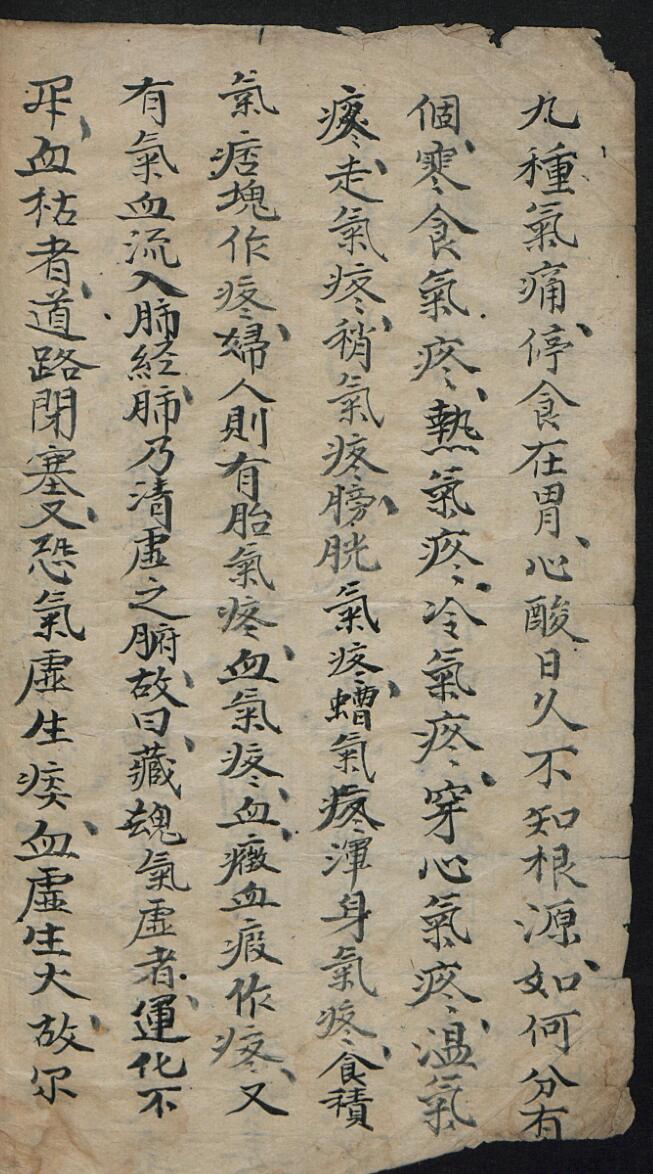 九種氣痛、停食在胃、心酸日久不知根源、如何分有
個、寒食氣疼、熱氣疼、冷氣疼、穿心氣疼、温氣
疼、走氣疼、稍氣疼、膀胱氣疼、螬氣疼渾身氣疼、食積
氣痞塊作疼、婦人則有胎氣疼、血氣疼、血癥血瘕作疼、又
有氣血流入肺經、肺乃清虛之腑、故曰、藏魄氣虛者、運化不
血枯者、道路閉塞、又恐氣虛生痰、血虛生火、故尔